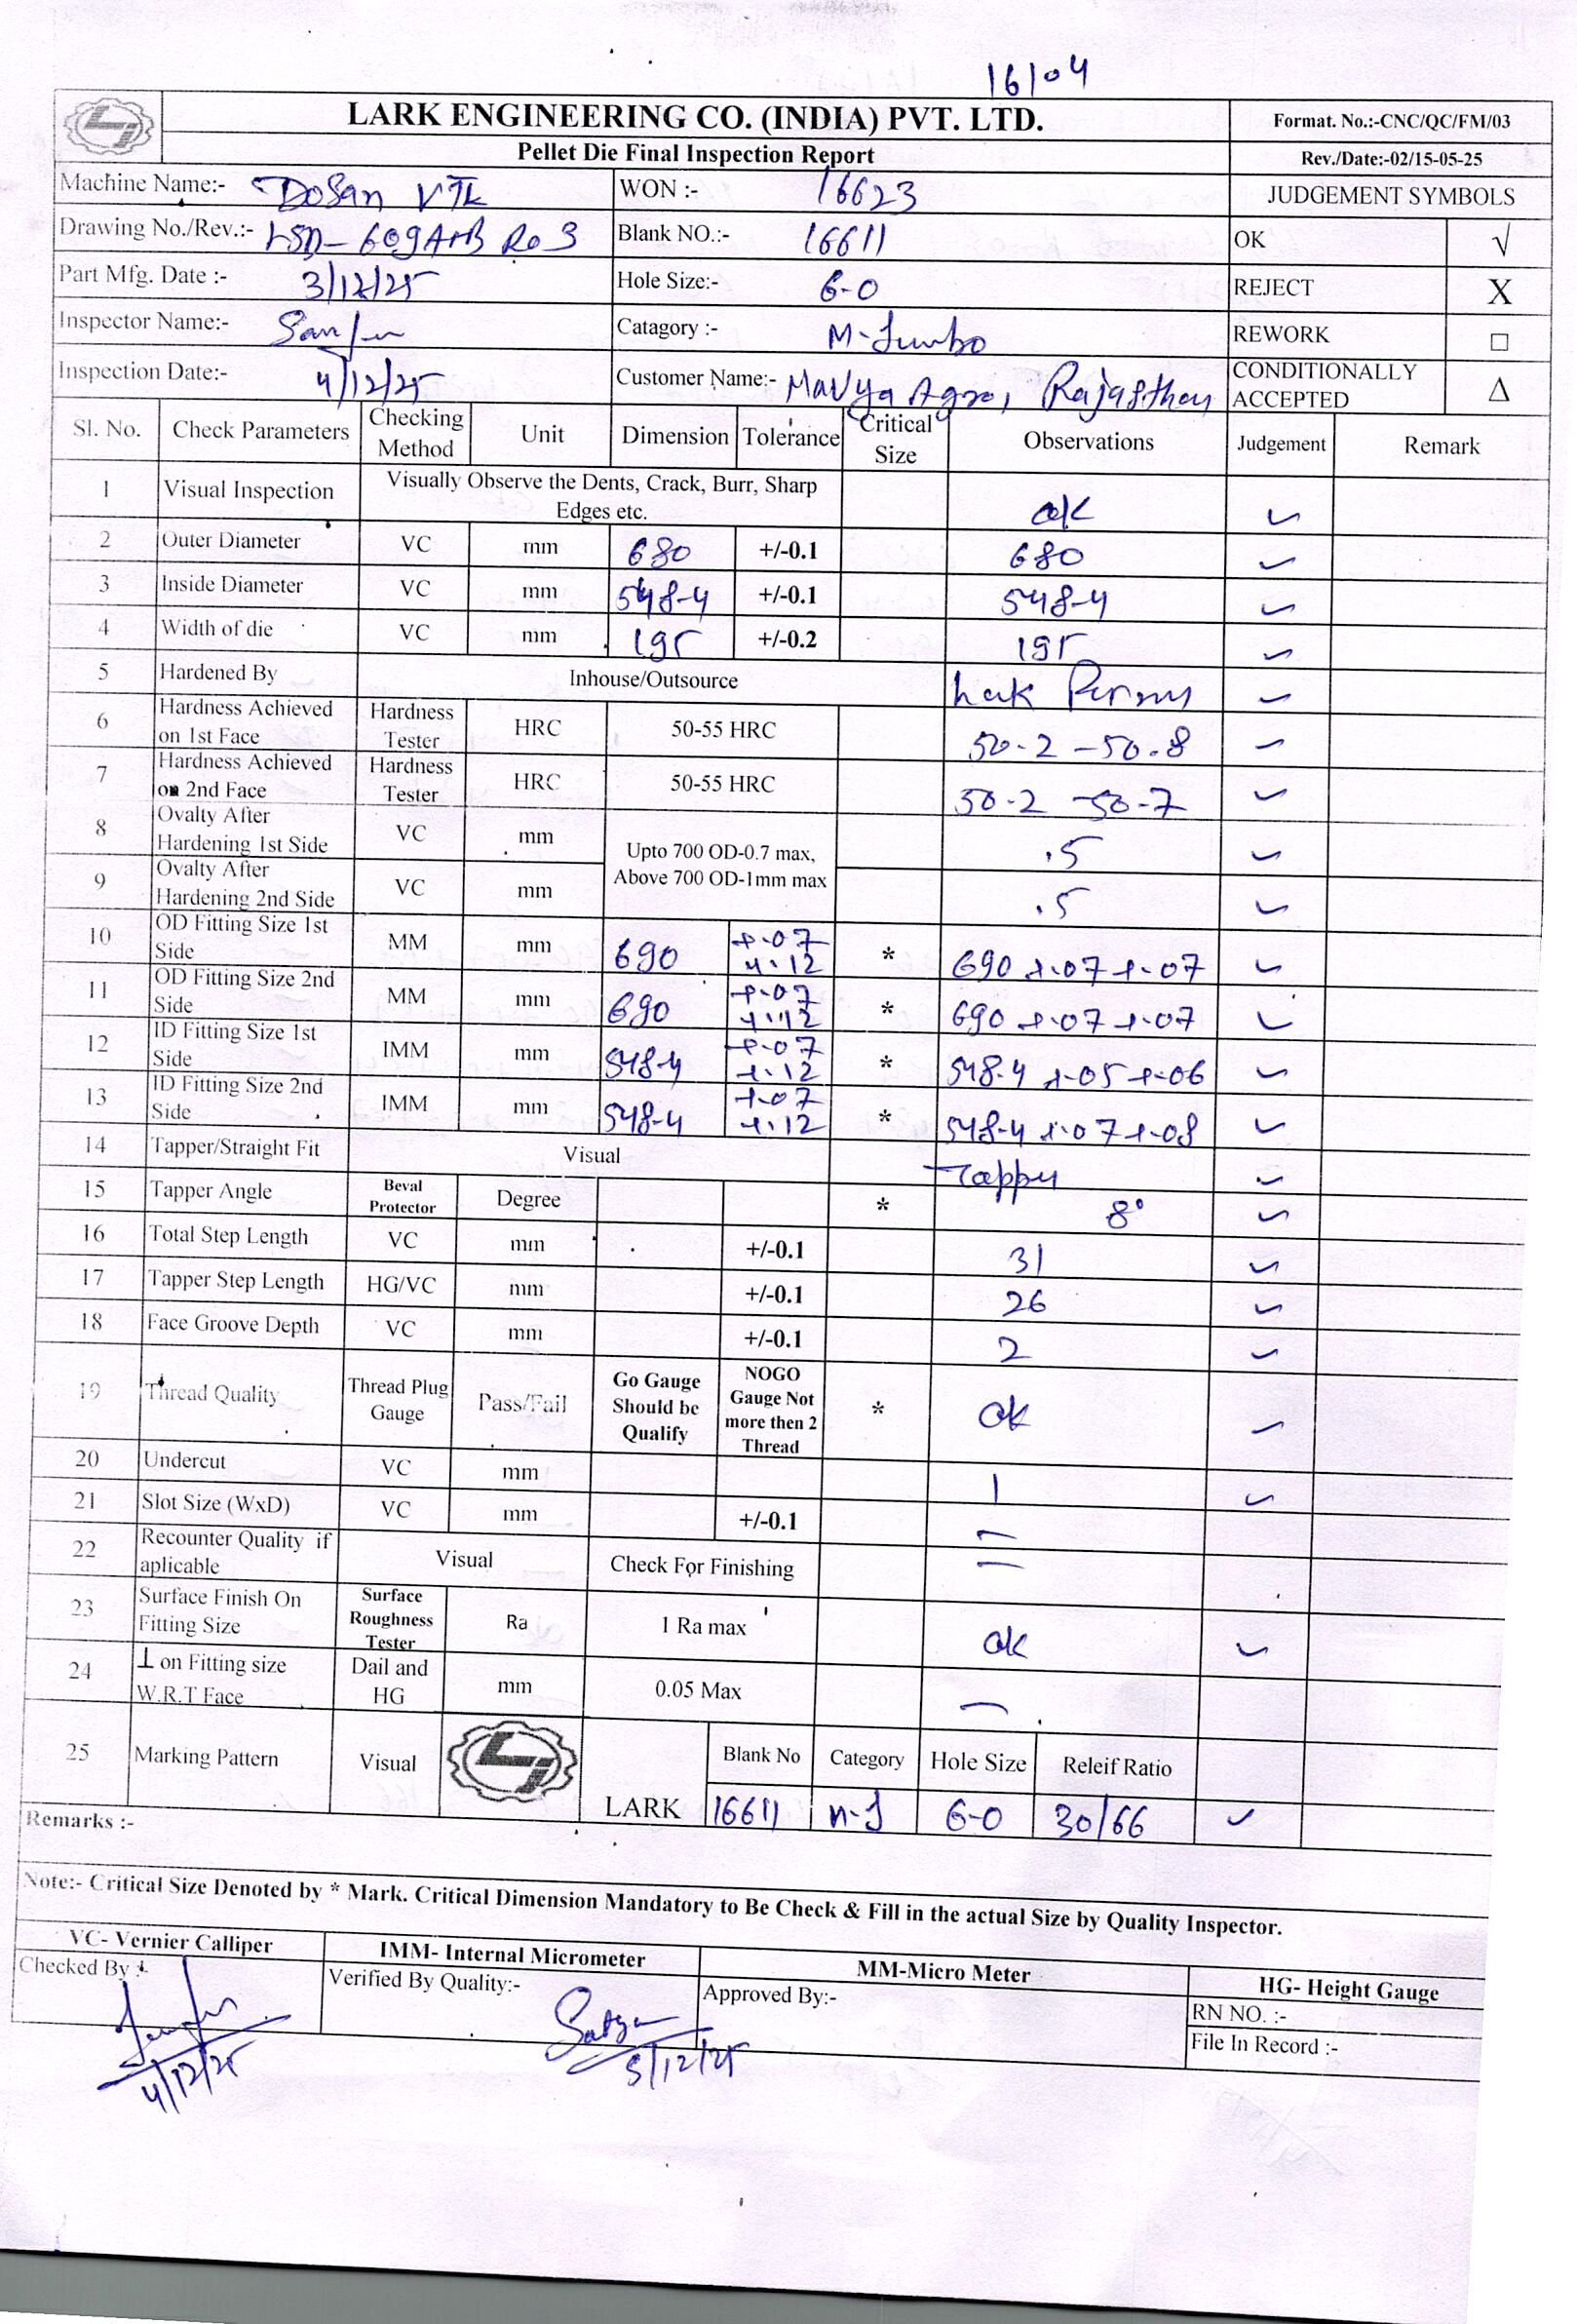 16/04
LARK ENGINEERING CO. (INDIA) PVT. LTD. Format. No.:-CNC/QC/FM/03
Pellet Die Final Inspection Report Rev./Date:-02/15-05-25
Machine Name:- DoSan VTL WON :- 16623 JUDGEMENT SYMBOLS
Drawing No./Rev.:- LSD-609A+B Ro3 Blank NO.:- 16611 OK √
Part Mfg. Date :- 3/12/25 Hole Size:- 6-0 REJECT X
Inspector Name:- Catagory :- M-Jumbo REWORK □
Inspection Date:- 4/12/25 Customer Name:- Mavya Agro, Rajasthan CONDITIONALLY ACCEPTED Δ
Sl. No. Check Parameters Checking Method Unit Dimension Tolerance Critical Size Observations Judgement Remark
1 Visual Inspection Visually Observe the Dents, Crack, Burr, Sharp Edges etc. ok ✓
2 Outer Diameter VC mm 680 +/-0.1 680 ✓
3 Inside Diameter VC mm 548-4 +/-0.1 548-4 ✓
4 Width of die VC mm 195 +/-0.2 195 ✓
5 Hardened By Inhouse/Outsource ✓
6 Hardness Achieved on 1st Face Hardness Tester HRC 50-55 HRC 50-2 -50-8 ✓
7 Hardness Achieved on 2nd Face Hardness Tester HRC 50-55 HRC 50-2 -50-7 ✓
8 Ovalty After Hardening 1st Side VC mm Upto 700 OD-0.7 max, Above 700 OD-1mm max .5 ✓
9 Ovalty After Hardening 2nd Side VC mm .5 ✓
10 OD Fitting Size 1st Side MM mm 690 +.07 +.12 * 690 +.07 +.07 ✓
11 OD Fitting Size 2nd Side MM mm 690 +.07 +.12 * 690 +.07 +.07 ✓
12 ID Fitting Size 1st Side IMM mm 548-4 +.07 +.12 * 548-4 +.05 +.06 ✓
13 ID Fitting Size 2nd Side IMM mm 548-4 +.07 +.12 * 548-4 +.07 +.08 ✓
14 Tapper/Straight Fit Visual Tapper ✓
15 Tapper Angle Beval Protector Degree * 8° ✓
16 Total Step Length VC mm +/-0.1 31 ✓
17 Tapper Step Length HG/VC mm +/-0.1 26 ✓
18 Face Groove Depth VC mm +/-0.1 2 ✓
19 Thread Quality Thread Plug Gauge Pass/Fail Go Gauge Should be Qualify NOGO Gauge Not more then 2 Thread * ok ✓
20 Undercut VC mm 1 ✓
21 Slot Size (WxD) VC mm +/-0.1 —
22 Recounter Quality if aplicable Visual Check For Finishing —
23 Surface Finish On Fitting Size Surface Roughness Tester Ra 1 Ra max ok ✓
24 ⊥ on Fitting size W.R.T Face Dail and HG mm 0.05 Max —
25 Marking Pattern Visual LARK Blank No Category Hole Size Releif Ratio
16611 M-J 6-0 30/66 ✓
Remarks :-
Note:- Critical Size Denoted by * Mark. Critical Dimension Mandatory to Be Check & Fill in the actual Size by Quality Inspector.
VC- Vernier Calliper IMM- Internal Micrometer MM-Micro Meter HG- Height Gauge
Checked By :- Verified By Quality:- Approved By:- RN NO. :-
File In Record :-
4/12/25 5/12/25